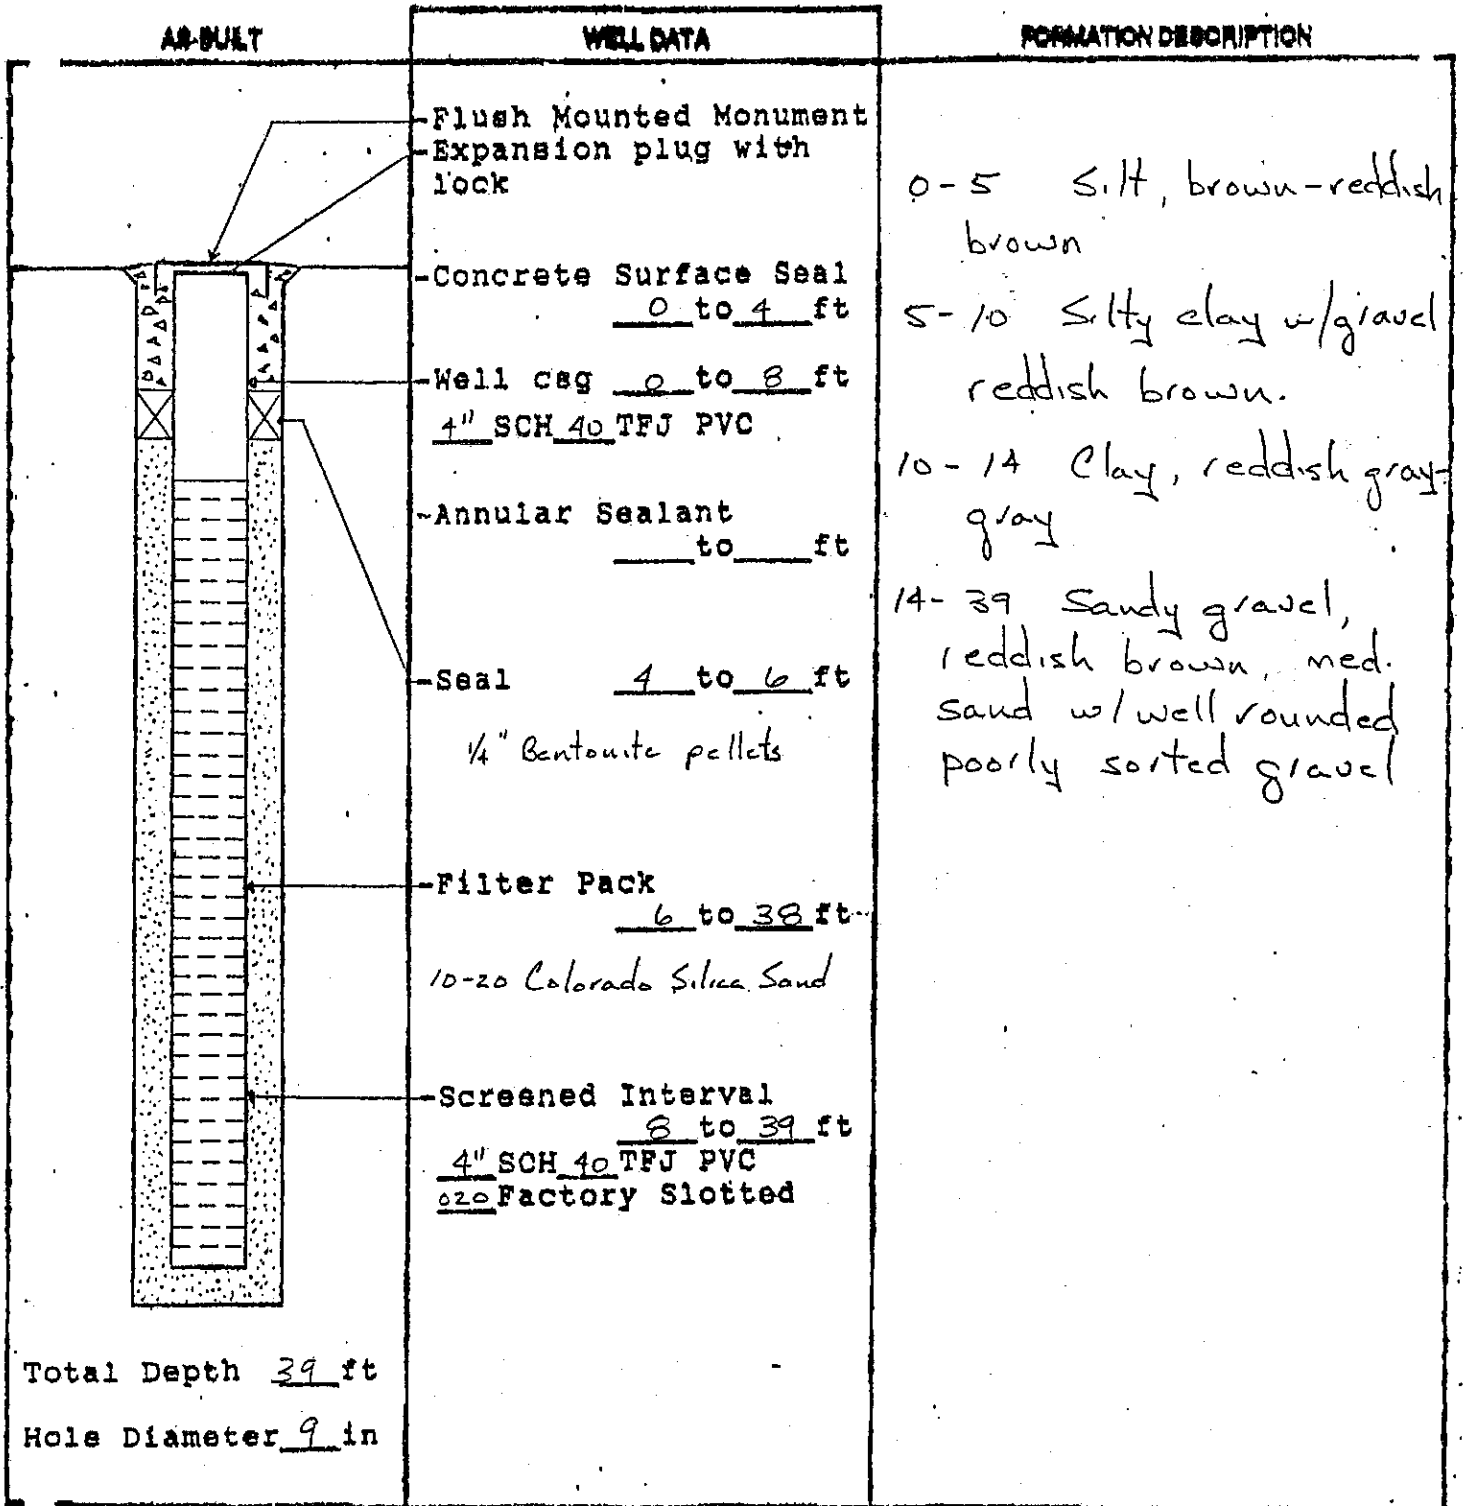 AS-BUILT
WELL DATA
FORMATION DESCRIPTION
-Flush Mounted Monument
-Expansion plug with
lock
-Concrete Surface Seal
0 to 4 ft
-Well csg 0 to 8 ft
4" SCH 40 TFJ PVC
-Annular Sealant
to ft
-Seal 4 to 6 ft
1/4" Bentonite pellets
-Filter Pack
6 to 38 ft
10-20 Colorado Silica Sand
-Screened Interval
8 to 39 ft
4" SCH 40 TFJ PVC
020 Factory Slotted
0-5 Silt, brown-reddish
brown
5-10 Silty clay w/gravel
reddish brown.
10-14 Clay, reddish gray-
gray
14-39 Sandy gravel,
reddish brown, med.
sand w/ well rounded
poorly sorted gravel
Total Depth 39 ft
Hole Diameter 9 in